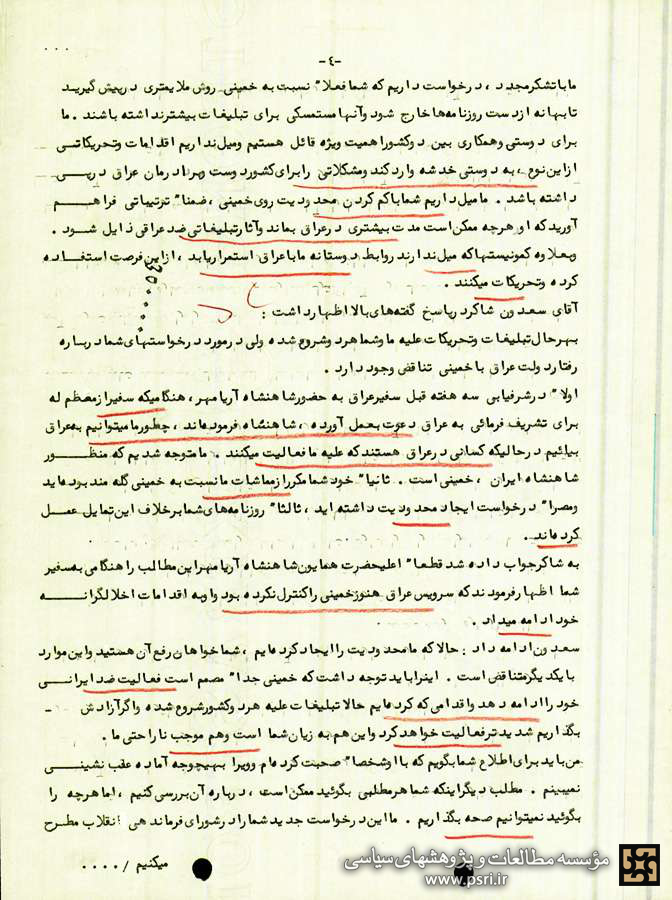 -٤-
ما با تشکر مجدد ، درخواست داریم که شما فعلا" نسبت به خمینی روش ملایمتری درپیش گیرید
تا بهانه از دست روزنامه‌ها خارج شود و آنها مستمسکی برای تبلیغات بیشتر نداشته باشند . ما
برای دوستی و همکاری بین دو کشور اهمیت ویژه قائل هستیم و میل نداریم اقدامات و تحریکاتی
از این نوع ، به دوستی خدشه وارد کند و مشکلاتی را برای کشور دوست و برادرمان عراق درپی
داشته باشد . ما میل داریم شما با کم کردن محدودیت روی خمینی ، ضمنا" ترتیباتی فراهم
آورید که او هرچه ممکن است مدت بیشتری در عراق بماند و آثار تبلیغاتی ضد عراقی زایل شود .
وبعلاوه کمونیستها که میل ندارند روابط دوستانه ما با عراق استمرار یابد ، از این فرصت استفاده
کرده و تحریکات میکنند .
آقای سعدون شاکر درپاسخ گفته‌های بالا اظهار داشت :
بهرحال تبلیغات و تحریکات علیه ما و شما هردو شروع شده ولی در مورد درخواستهای شما درباره
رفتار دولت عراق با خمینی تناقض وجود دارد .
اولا" در شرفیابی سه هفته قبل سفیر عراق به حضور شاهنشاه آریامهر ، هنگامیکه سفیر از معظم له
برای تشریف فرمائی به عراق دعوت بعمل آورده ، شاهنشاه فرموده‌اند ، چطور ما میتوانیم به عراق
بیائیم در حالیکه کسانی در عراق هستند که علیه ما فعالیت میکنند . ما متوجه شدیم که منظور
شاهنشاه ایران ، خمینی است . ثانیا" خود شما مکرر از مماشات ما نسبت به خمینی گله مند بوده‌اید
ومصرا" درخواست ایجاد محدودیت داشته اید ، ثالثا" روزنامه‌های شما برخلاف این تمایل عمل
کرده‌اند .
به شاکر جواب داده شد قطعا" اعلیحضرت همایون شاهنشاه آریامهر این مطالب را هنگامی به سفیر
شما اظهار فرمودند که سرویس عراق هنوز خمینی را کنترل نکرده بود و او به اقدامات اخلالگرانه
خود ادامه میداد .
سعدون ادامه داد : حالا که ما محدودیت را ایجاد کرده‌ایم ، شما خواهان رفع آن هستید و این موارد
با یکدیگر متناقض است . اینرا باید توجه داشت که خمینی جدا" مصمم است فعالیت ضد ایرانی
خود را ادامه دهد و اقدامی که کرده‌ایم حالا تبلیغات علیه هردو کشور شروع شده و اگر آزادش -
بگذاریم شدیدتر فعالیت خواهد کرد و این هم به زیان شما است وهم موجب ناراحتی ما .
من باید برای اطلاع شما بگویم که با او شخصا" صحبت کرده‌ام و ویرا بهیچوجه آماده عقب نشینی
نمیبینم . مطلب دیگر اینکه شما هر مطلبی بگوئید ممکن است ، درباره آن بررسی کنیم ، اما هرچه را
بگوئید نمیتوانیم صحه بگذاریم . ما این درخواست جدید شما را در شورای فرماندهی انقلاب مطرح
میکنیم / ....
مؤسسه مطالعات و پژوهشهای سیاسی
www.psri.ir